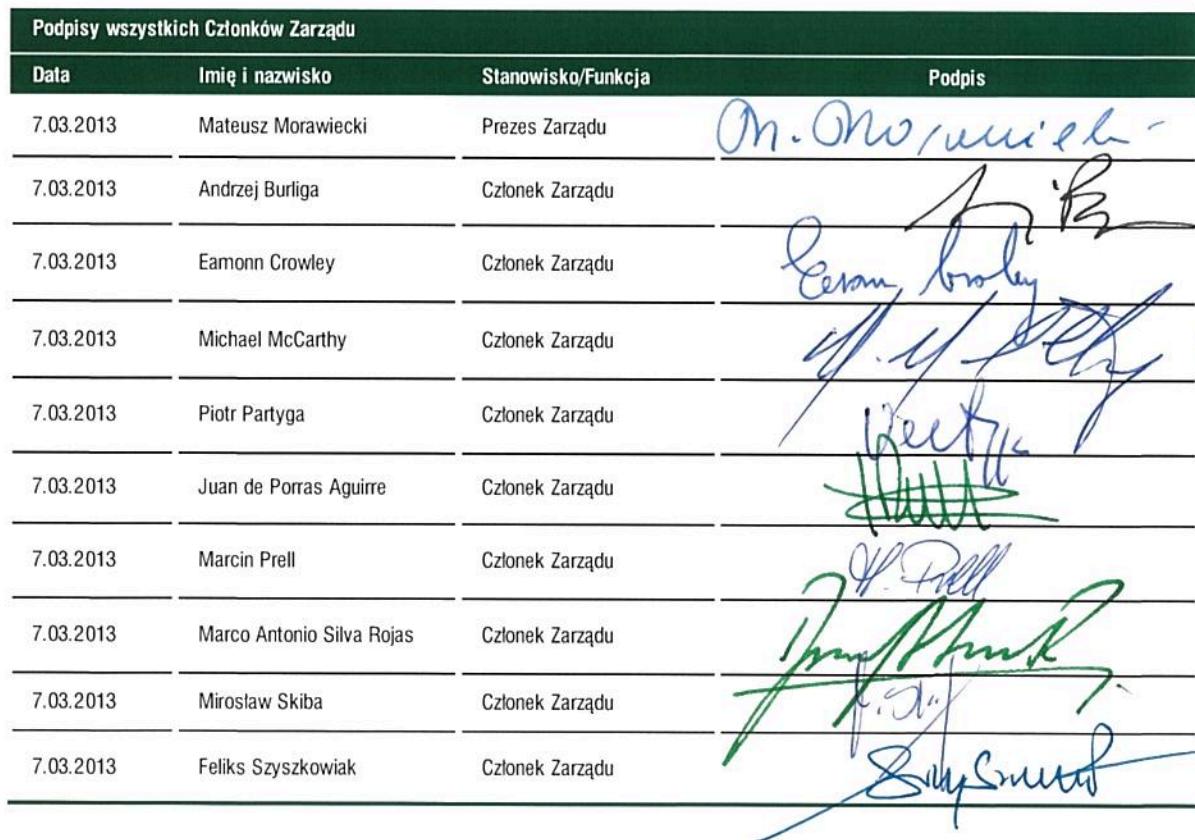 Podpisy wszystkich Członków Zarządu
Data Imię i nazwisko Stanowisko/Funkcja Podpis
7.03.2013 Mateusz Morawiecki Prezes Zarządu
7.03.2013 Andrzej Burliga Członek Zarządu
7.03.2013 Eamonn Crowley Członek Zarządu
7.03.2013 Michael McCarthy Członek Zarządu
7.03.2013 Piotr Partyga Członek Zarządu
7.03.2013 Juan de Porras Aguirre Członek Zarządu
7.03.2013 Marcin Prell Członek Zarządu
7.03.2013 Marco Antonio Silva Rojas Członek Zarządu
7.03.2013 Mirosław Skiba Członek Zarządu
7.03.2013 Feliks Szyszkowiak Członek Zarządu